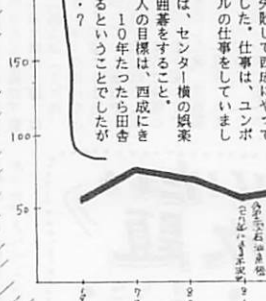 失敗して西成にやって
した。仕事は、ユンボ
ルの仕事をしていまし
は、センター横の娯楽
囲碁をすること。
人の目標は、西成にき
10年たったら田舎
るということでしたが
・?
150
100
50
6
7
8
9